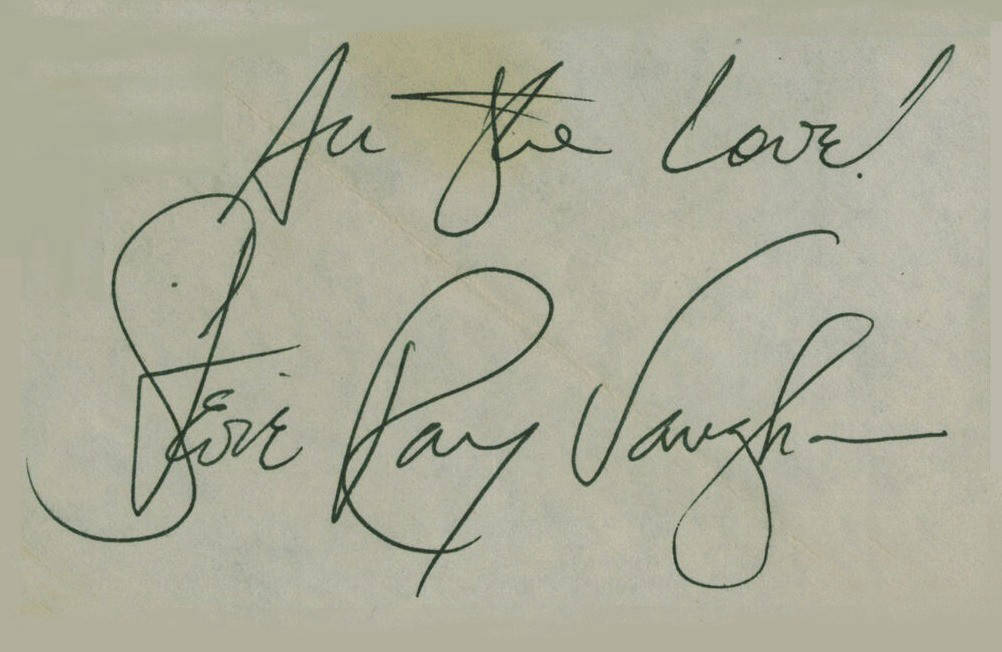 All The Love!
Stevie Ray Vaughn